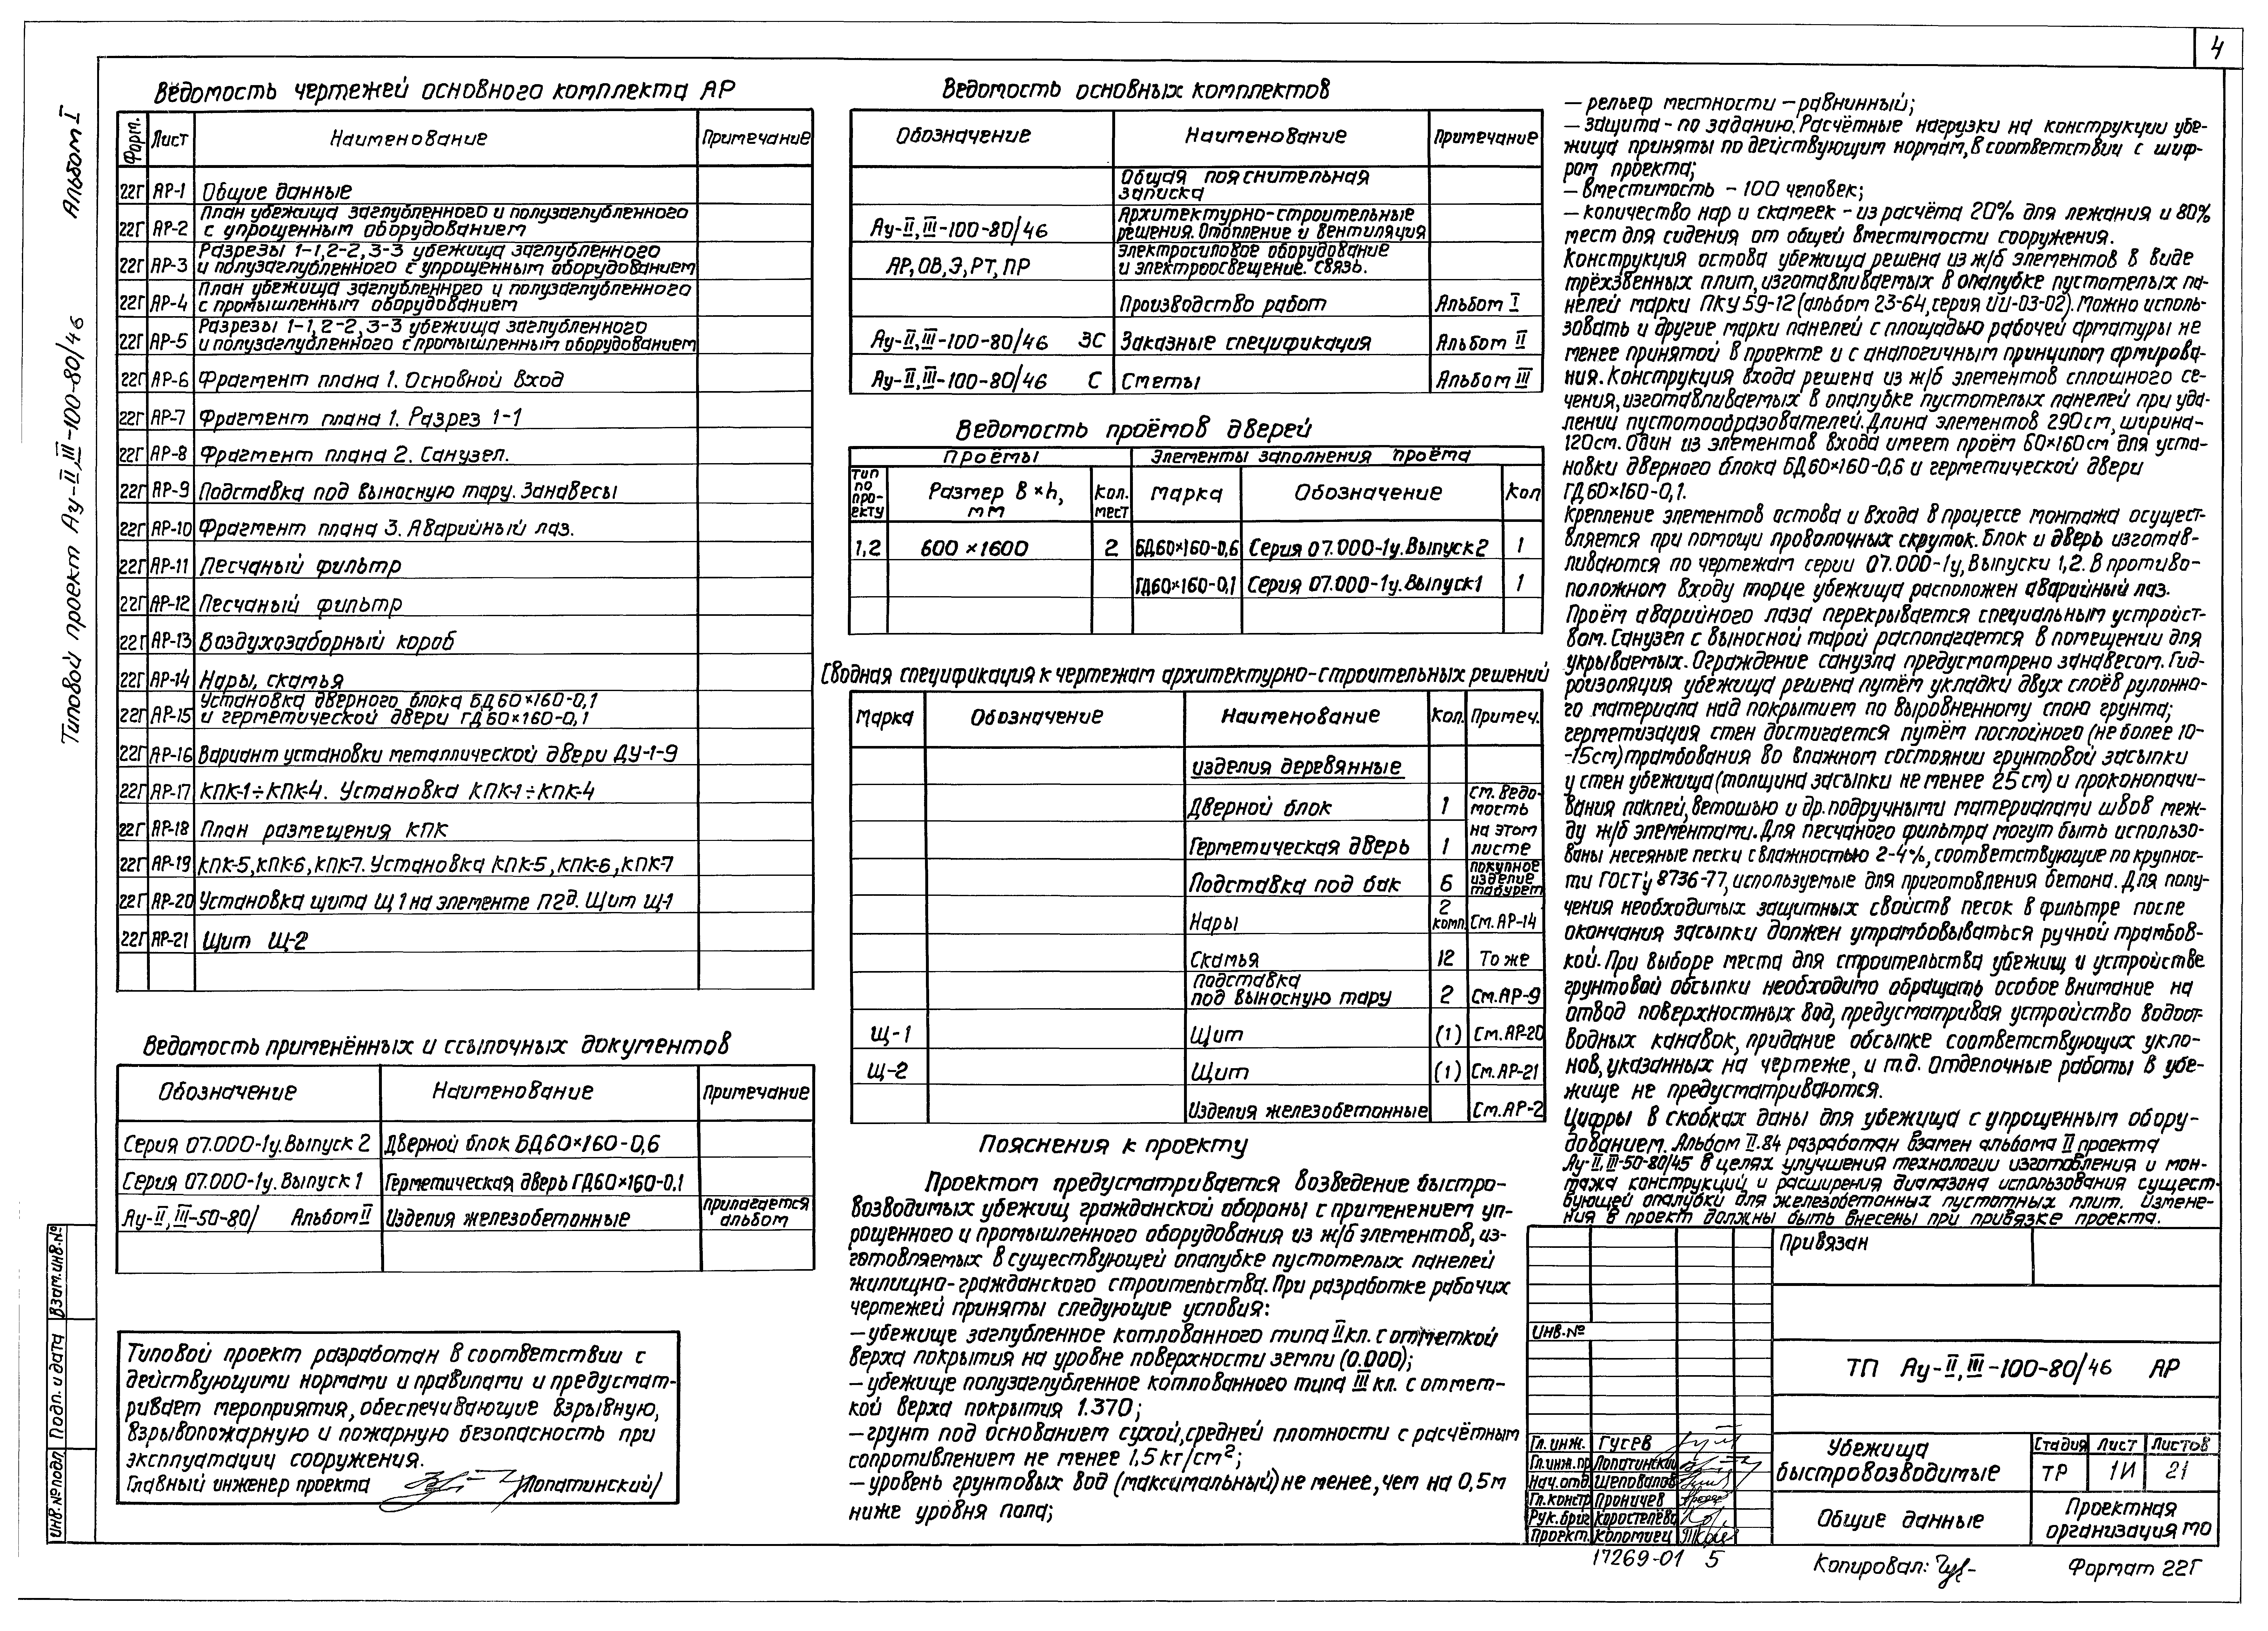 4
Альбом I
Типовой проект Ау-II,III-100-80/46
Ведомость чертежей основного комплекта АР
Форм. Лист Наименование Примечание
22Г АР-1 Общие данные
22Г АР-2 План убежища заглубленного и полузаглубленного
с упрощенным оборудованием
22Г АР-3 Разрезы 1-1,2-2, 3-3 убежища заглубленного
и полузаглубленного с упрощенным оборудованием
22Г АР-4 План убежища заглубленного и полузаглубленного
с промышленным оборудованием
22Г АР-5 Разрезы 1-1, 2-2, 3-3 убежища заглубленного
и полузаглубленного с промышленным оборудованием
22Г АР-6 Фрагмент плана 1. Основной вход
22Г АР-7 Фрагмент плана 1. Разрез 1-1
22Г АР-8 Фрагмент плана 2. Санузел.
22Г АР-9 Подставка под выносную тару. Занавесы
22Г АР-10 Фрагмент плана 3. Аварийный лаз.
22Г АР-11 Песчаный фильтр
22Г АР-12 Песчаный фильтр
22Г АР-13 Воздухозаборный короб
22Г АР-14 Нары, скамья
22Г АР-15 Установка дверного блока БД60×160-0,1
и герметической двери ГД60×160-0,1
22Г АР-16 Вариант установки металлической двери ДУ-1-9
22Г АР-17 КПК-1÷КПК-4. Установка КПК-1÷КПК-4
22Г АР-18 План размещения КПК
22Г АР-19 КПК-5, КПК-6, КПК-7. Установка КПК-5, КПК-6, КПК-7
22Г АР-20 Установка щита Щ1 на элементе П2д. Щит Щ-1
22Г АР-21 Щит Щ-2
Ведомость применённых и ссылочных документов
Обозначение Наименование Примечание
Серия 07.000-1у. Выпуск 2 Дверной блок БД60×160-0,6
Серия 07.000-1у. Выпуск 1 Герметическая дверь ГД60×160-0,1
Ау-II,III-50-80/ Альбом II Изделия железобетонные прилагается
альбом
Типовой проект разработан в соответствии с
действующими нормами и правилами и предусмат-
ривает мероприятия, обеспечивающие взрывную,
взрывопожарную и пожарную безопасность при
эксплуатации сооружения.
Главный инженер проекта /Лопатинский/
Взам.инв.№
Подп. и дата
Инв.№подл
Ведомость основных комплектов
Обозначение Наименование Примечание
Общая пояснительная
записка
Ау-II,III-100-80/46 Архитектурно-строительные
решения. Отопление и вентиляция
АР, ОВ, Э, РТ, ПР Электросиловое оборудование
и электроосвещение. Связь.
Производство работ Альбом I
Ау-II,III-100-80/46 ЗС Заказные спецификация Альбом II
Ау-II,III-100-80/46 С Сметы Альбом III
Ведомость проёмов дверей
Проёмы Элементы заполнения проёма
Тип
по
про-
екту Размер B×h,
мм Кол.
мест Марка Обозначение Кол
1,2 600×1600 2 БД60×160-0,6 Серия 07.000-1у. Выпуск 2 1
ГД60×160-0,1 Серия 07.000-1у. Выпуск 1 1
Сводная спецификация к чертежам архитектурно-строительных решений
Марка Обозначение Наименование Кол. Примеч.
изделия деревянные
Дверной блок 1 См. ведо-
мость
Герметическая дверь 1 на этом
листе
Подставка под бак 6 покупное
изделие
табурет
Нары 2
комп. См.АР-14
Скамья 12 То же
подставка
под выносную тару 2 См.АР-9
Щ-1 Щит (1) См.АР-20
Щ-2 Щит (1) См.АР-21
Изделия железобетонные См.АР-2
Пояснения к проекту
Проектом предусматривается возведение быстро-
возводимых убежищ гражданской обороны с применением уп-
рощенного и промышленного оборудования из ж/б элементов, из-
готовляемых в существующей опалубке пустотелых панелей
жилищно-гражданского строительства. При разработке рабочих
чертежей приняты следующие условия:
— убежище заглубленное котлованного типа II кл. с отметкой
верха покрытия на уровне поверхности земли (0.000);
— убежище полузаглубленное котлованного типа III кл. с отмет-
кой верха покрытия 1.370;
— грунт под основанием сухой, средней плотности с расчётным
сопротивлением не менее 1,5 кг/см²;
— уровень грунтовых вод (максимальный) не менее, чем на 0,5м
ниже уровня пола;
— рельеф местности — равнинный;
— защита - по заданию. Расчётные нагрузки на конструкции убе-
жища приняты по действующим нормам, в соответствии с шиф-
ром проекта;
— вместимость - 100 человек;
— количество нар и скамеек - из расчёта 20% для лежания и 80%
мест для сидения от общей вместимости сооружения.
Конструкция остова убежища решена из ж/б элементов в виде
трёхзвенных плит, изготавливаемых в опалубке пустотелых па-
нелей марки ПКУ 59-12 (альбом 23-64, серия ИИ-03-02). Можно исполь-
зовать и другие марки панелей с площадью рабочей арматуры не
менее принятой в проекте и с аналогичным принципом армирова-
ния. Конструкция входа решена из ж/б элементов сплошного се-
чения, изготавливаемых в опалубке пустотелых панелей при уда-
лении пустотообразователей. Длина элементов 290см, ширина-
120см. Один из элементов входа имеет проём 60×160см для уста-
новки дверного блока БД60×160-0,6 и герметической двери
ГД60×160-0,1.
Крепление элементов остова и входа в процессе монтажа осущест-
вляется при помощи проволочных скруток. Блок и дверь изготав-
ливаются по чертежам серии 07.000-1у, Выпуски 1,2. В противо-
положном входу торце убежища расположен аварийный лаз.
Проём аварийного лаза перекрывается специальным устройст-
вом. Санузел с выносной тарой располагается в помещении для
укрываемых. Ограждение санузла предусмотрено занавесом. Гид-
роизоляция убежища решена путём укладки двух слоёв рулонно-
го материала над покрытием по выровненному слою грунта;
герметизация стен достигается путём послойного (не более 10-
-15см) трамбования во влажном состоянии грунтовой засыпки
у стен убежища (толщина засыпки не менее 25 см) и проконопачи-
вания паклей, ветошью и др. подручными материалами швов меж-
ду ж/б элементами. Для песчаного фильтра могут быть использо-
ваны несеяные пески с влажностью 2-4%, соответствующие по крупнос-
ти ГОСТ'у 8736-77, используемые для приготовления бетона. Для полу-
чения необходимых защитных свойств песок в фильтре после
окончания засыпки должен утрамбовываться ручной трамбов-
кой. При выборе места для строительства убежищ и устройстве
грунтовой обсыпки необходимо обращать особое внимание на
отвод поверхностных вод, предусматривая устройство водоот-
водных канавок, придание обсыпке соответствующих укло-
нов, указанных на чертеже, и т.д. Отделочные работы в убе-
жище не предусматриваются.
Цифры в скобках даны для убежища с упрощенным обору-
дованием. Альбом II.84 разработан взамен альбома II проекта
Ау-II,III-50-80/45 в целях улучшения технологии изготовления и мон-
тажа конструкций и расширения диапазона использования сущест-
вующей опалубки для железобетонных пустотных плит. Измене-
ния в проект должны быть внесены при привязке проекта.
Привязан
Инв.№
ТП Ау-II,III-100-80/46 АР
Гл. инж. Гусев
Гл.инж.пр Лопатинский
Нач.отд. Шеповалов
Гл.констр Проничев
Рук.бриг Коростелёва
Проект. Коломиец
Убежища
быстровозводимые
Стадия Лист Листов
ТР 1И 21
Общие данные
Проектная
организация МО
17269-01 5
Копировал:
Формат 22Г